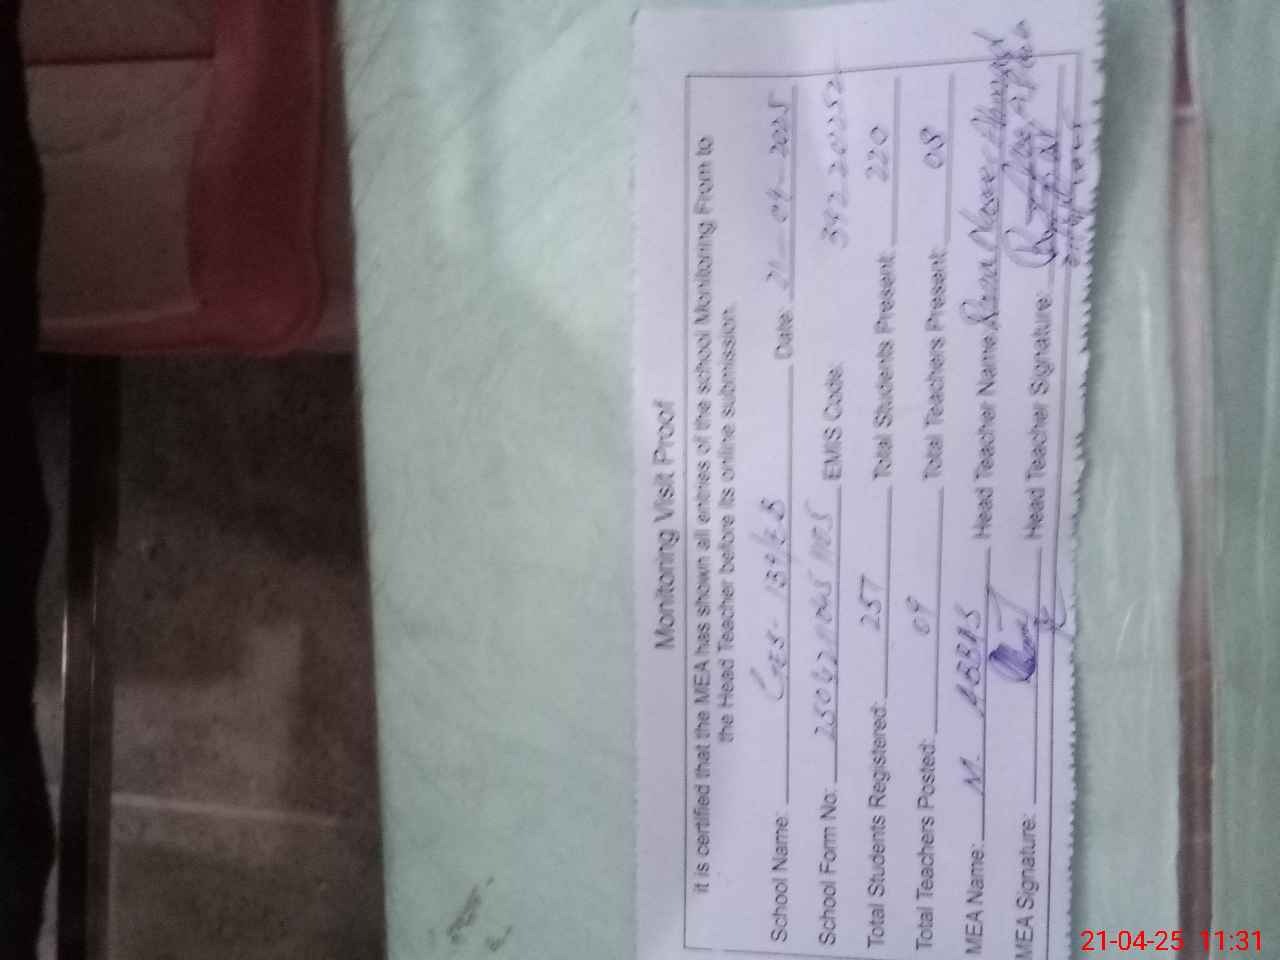 Monitoring Visit Proof
it is certified that the MEA has shown all entries of the school Monitoring From to
the Head Teacher before its online submission.
School Name: GES- 184/EB Date: 21-04-2025
School Form No: EMIS Code:
Total Students Registered: 257 Total Students Present: 220
Total Teachers Posted: 09 Total Teachers Present: 08
MEA Name: M. ABBAS Head Teacher Name:
MEA Signature: Head Teacher Signature:
21-04-25 11:31